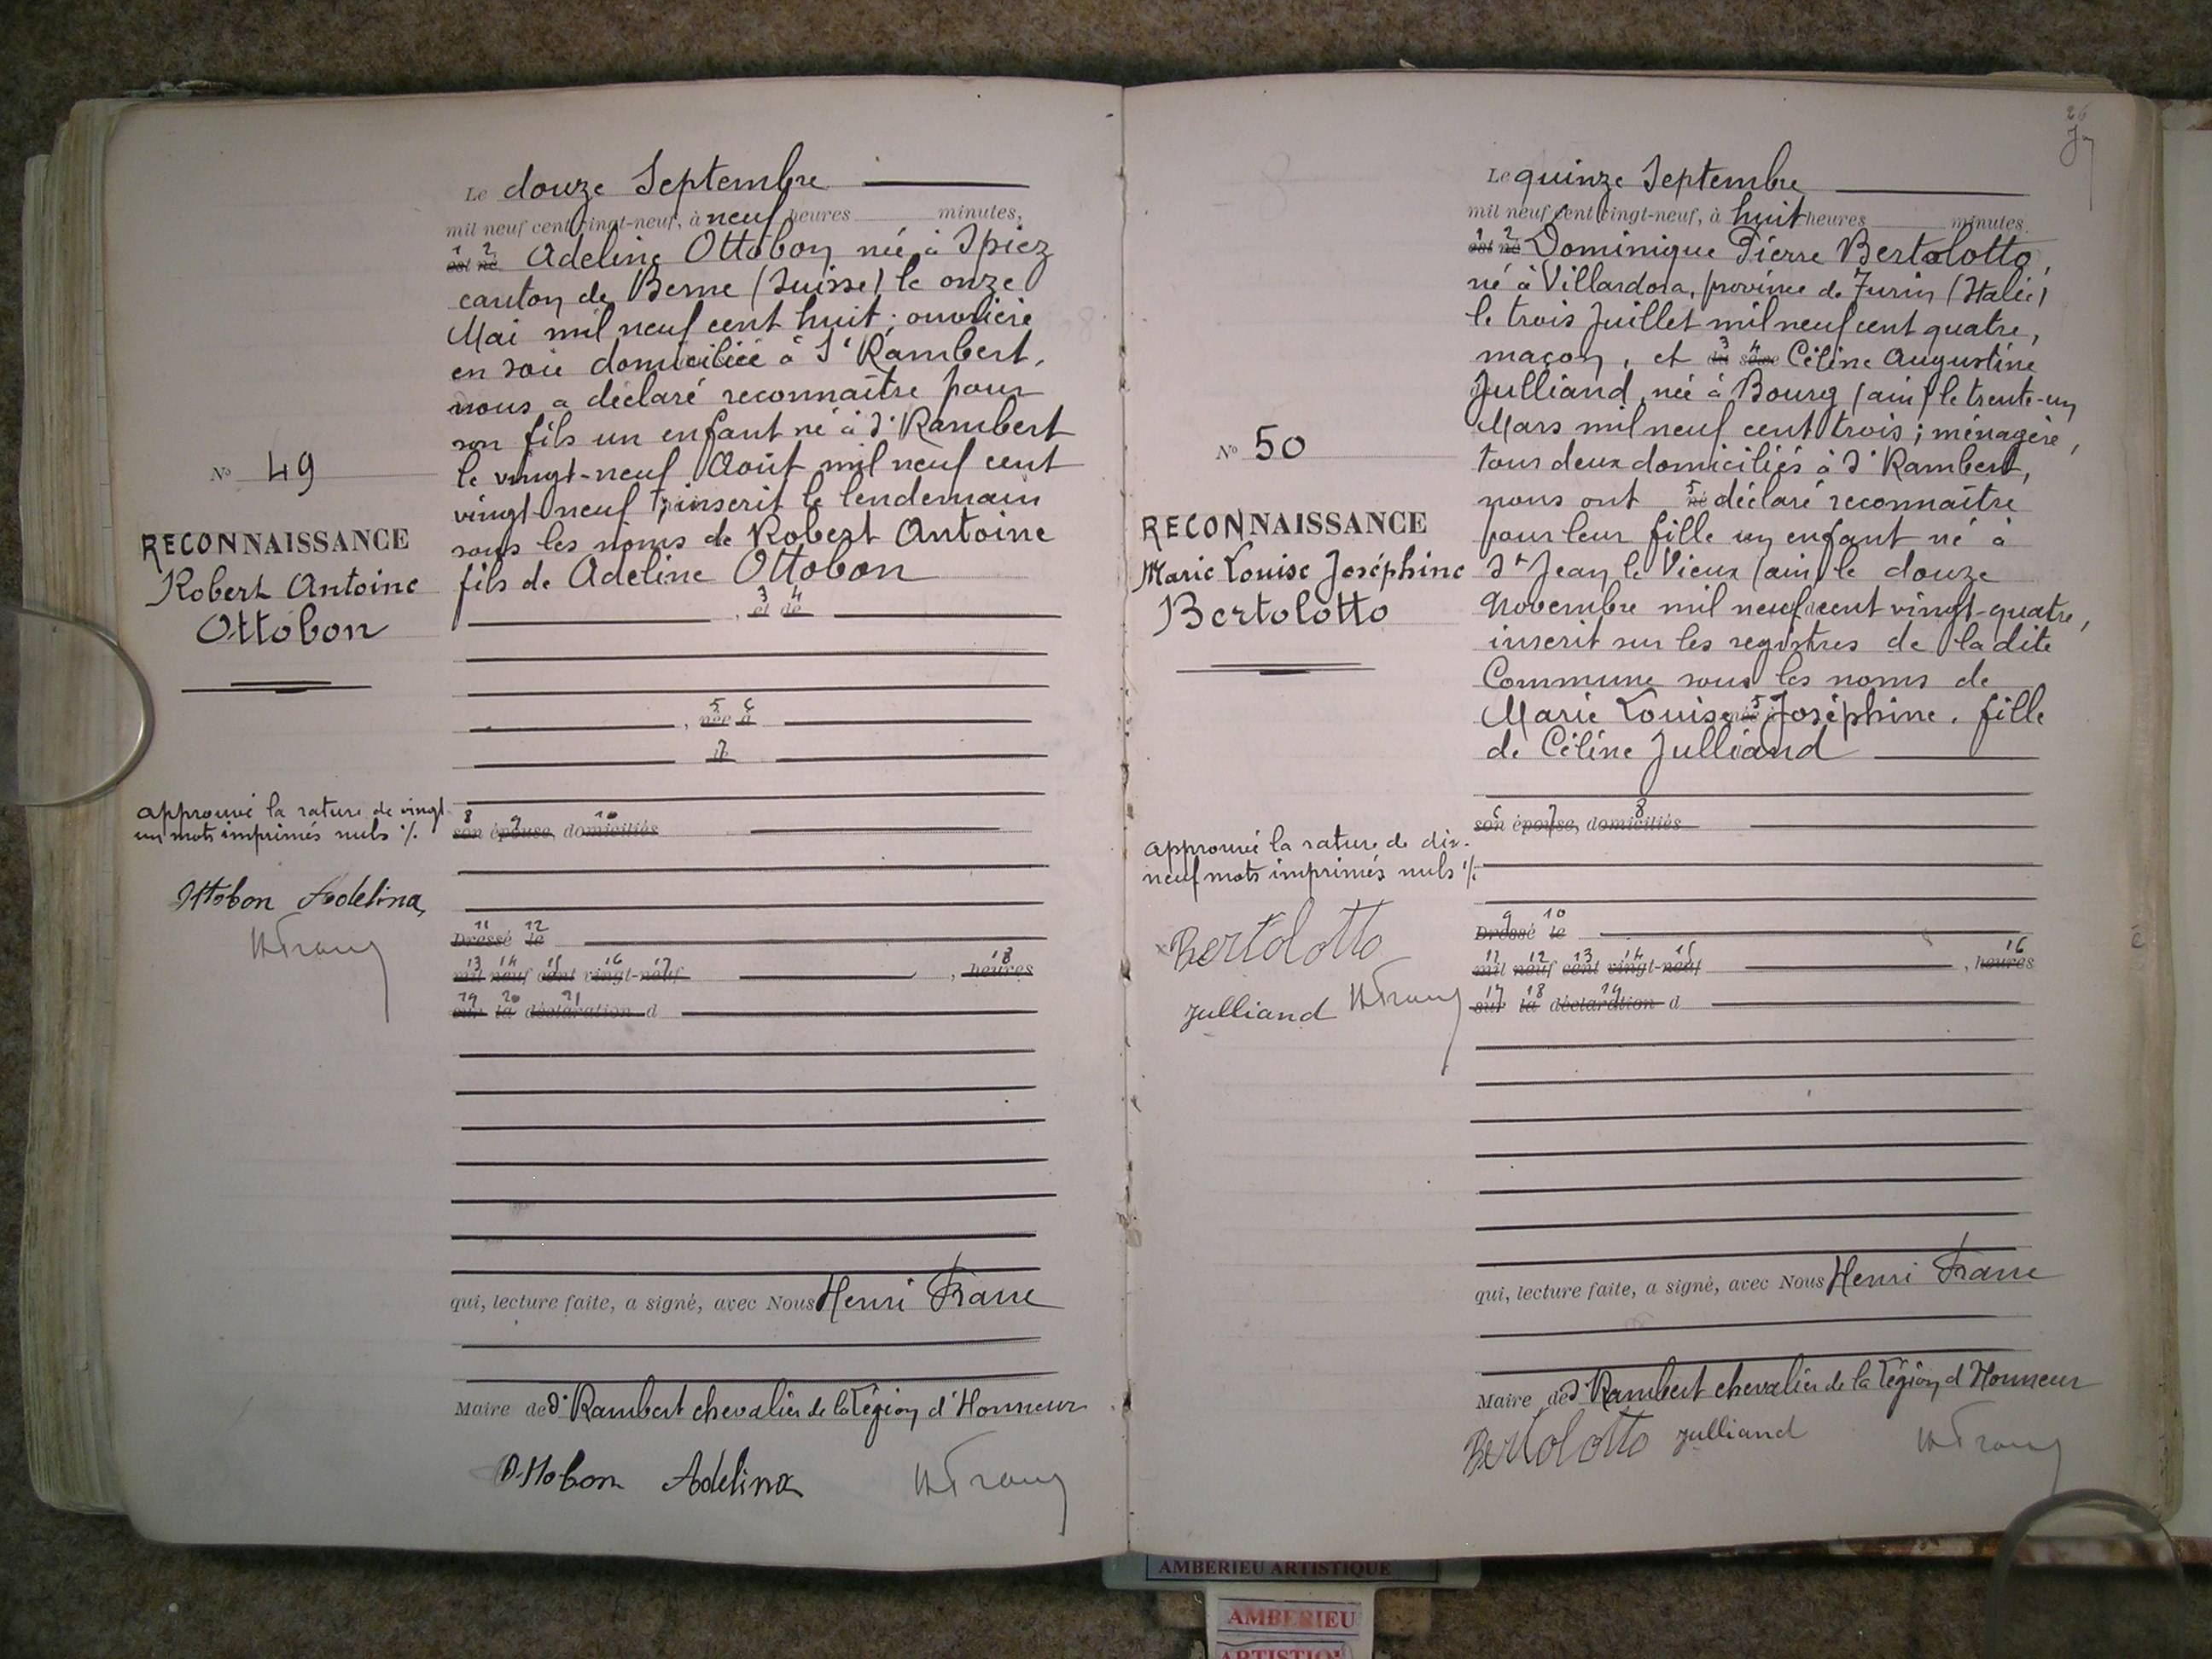 Le douze Septembre
mil neuf cent vingt-neuf, à neuf heures minutes,
1 2
est né Adeline Ottobon née à Spiez
canton de Berne (Suisse) le onze
Mai mil neuf cent huit ; ouvrière
en soie domiciliée à St Rambert,
nous a déclaré reconnaître pour
son fils un enfant né à St Rambert
le vingt-neuf Août mil neuf cent
vingt-neuf, inscrit le lendemain
sous les noms de Robert Antoine
fils de Adeline Ottobon
3 4
, et de
5 6
, née à
7
8 9 10
son épouse, domiciliés
11 12
Dressé le
13 14 15 16 17 18
mil neuf cent vingt-neuf , heures
19 20 21
sur la déclaration d
qui, lecture faite, a signé, avec Nous Henri Franc
Maire de St Rambert chevalier de la Légion d'Honneur
Ottobon Adelina
N° 49
RECONNAISSANCE
Robert Antoine
Ottobon
approuvé la rature de vingt
un mots imprimés nuls ./.
Ottobon Adelina
HFranc
26
Le quinze Septembre
mil neuf cent vingt-neuf, à huit heures minutes,
1 2
est né Dominique Pierre Bertolotto,
né à Villardora, province de Turin (Italie)
le trois Juillet mil neuf cent quatre,
3 4
maçon, et du sexe Céline Augustine
Julliand, née à Bourg (ain) le trente-un
Mars mil neuf cent trois ; ménagère,
tous deux domiciliés à St Rambert,
5
nous ont né déclaré reconnaître
pour leur fille un enfant né à
St Jean le Vieux (ain) le douze
Novembre mil neuf cent vingt-quatre,
inscrit sur les registres de la dite
Commune sous les noms de
Marie Louise Joséphine, fille
de Céline Julliand
6 7 8
son épouse, domiciliés
9 10
Dressé le
11 12 13 14 15 16
mil neuf cent vingt-neuf , heures
17 18 19
sur la déclaration d
qui, lecture faite, a signé, avec Nous Henri Franc
Maire de St Rambert chevalier de la Légion d'Honneur
Bertolotto Julliand HFranc
N° 50
RECONNAISSANCE
Marie Louise Joséphine
Bertolotto
approuvé la rature de dix-
neuf mots imprimés nuls ./.
Bertolotto
Julliand HFranc
AMBERIEU ARTISTIQUE
AMBERIEU